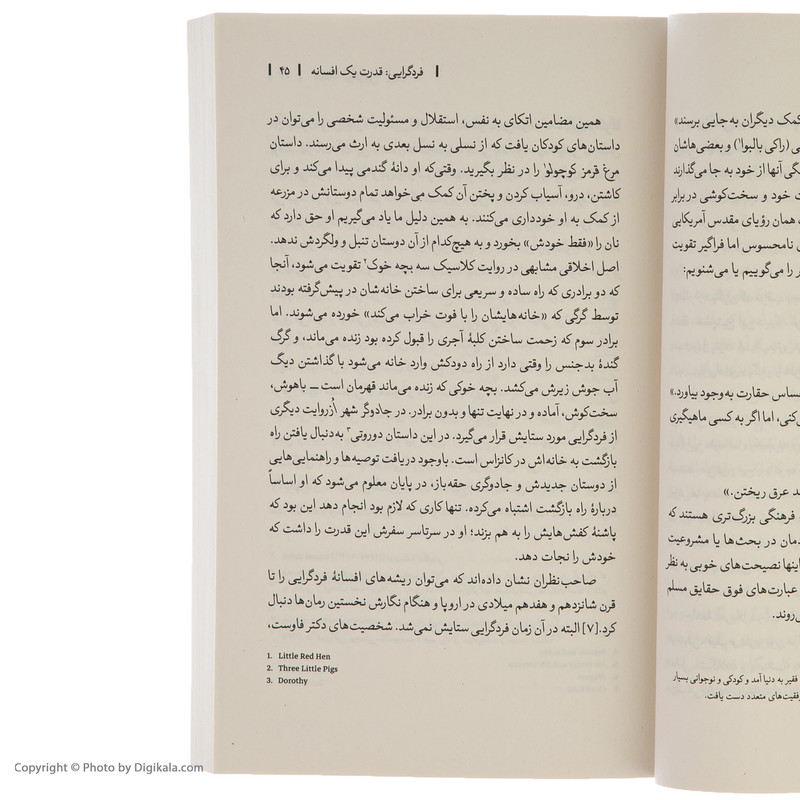 کمک دیگران به جایی برسند»
(راکی بالبوا) و بعضی‌هاشان
گی آنها از خود به جا می‌گذارند
ت خود و سخت‌کوشی در برابر
همان رؤیای مقدس آمریکایی
نامحسوس اما فراگیر تقویت
را می‌گوییم یا می‌شنویم:
ساس حقارت به‌وجود بیاورد.»
کنی، اما اگر به کسی ماهیگیری
ند عرق ریختن.»
فرهنگی بزرگ‌تری هستند که
دمان در بحث‌ها یا مشروعیت
اینها نصیحت‌های خوبی به نظر
عبارت‌های فوق حقایق مسلم
می‌روند.
فقیر به دنیا آمد و کودکی و نوجوانی بسیار
وفقیت‌های متعدد دست یافت.
فردگرایی: قدرت یک افسانه | ۴۵ |
همین مضامین اتکای به نفس، استقلال و مسئولیت شخصی را می‌توان در
داستان‌های کودکان یافت که از نسلی به نسل بعدی به ارث می‌رسند. داستان
مرغ قرمز کوچولو۱ را در نظر بگیرید. وقتی‌که او دانهٔ گندمی پیدا می‌کند و برای
کاشتن، درو، آسیاب کردن و پختن آن کمک می‌خواهد تمام دوستانش در مزرعه
از کمک به او خودداری می‌کنند. به همین دلیل ما یاد می‌گیریم او حق دارد که
نان را «فقط خودش» بخورد و به هیچ‌کدام از آن دوستان تنبل و ولگردش ندهد.
اصل اخلاقی مشابهی در روایت کلاسیک سه بچه خوک۲ تقویت می‌شود، آنجا
که دو برادری که راه ساده و سریعی برای ساختن خانه‌شان در پیش‌گرفته بودند
توسط گرگی که «خانه‌هایشان را با فوت خراب می‌کند» خورده می‌شوند. اما
برادر سوم که زحمت ساختن کلبهٔ آجری را قبول کرده بود زنده می‌ماند، و گرگ
گندهٔ بدجنس را وقتی دارد از راه دودکش وارد خانه می‌شود با گذاشتن دیگ
آب جوش زیرش می‌کشد. بچه خوکی که زنده می‌ماند قهرمان است ــ باهوش،
سخت‌کوش، آماده و در نهایت تنها و بدون برادر. در جادوگر شهر اُز روایت دیگری
از فردگرایی مورد ستایش قرار می‌گیرد. در این داستان دوروتی۳ به‌دنبال یافتن راه
بازگشت به خانه‌اش در کانزاس است. باوجود دریافت توصیه‌ها و راهنمایی‌هایی
از دوستان جدیدش و جادوگری حقه‌باز، در پایان معلوم می‌شود که او اساساً
دربارهٔ راه بازگشت اشتباه می‌کرده. تنها کاری که لازم بود انجام دهد این بود که
پاشنهٔ کفش‌هایش را به هم بزند؛ او در سرتاسر سفرش این قدرت را داشت که
خودش را نجات دهد.
صاحب‌نظران نشان داده‌اند که می‌توان ریشه‌های افسانهٔ فردگرایی را تا
قرن شانزدهم و هفدهم میلادی در اروپا و هنگام نگارش نخستین رمان‌ها دنبال
کرد.[۷] البته در آن زمان فردگرایی ستایش نمی‌شد. شخصیت‌های دکتر فاوست،
1. Little Red Hen
2. Three Little Pigs
3. Dorothy
Copyright © Photo by Digikala.com